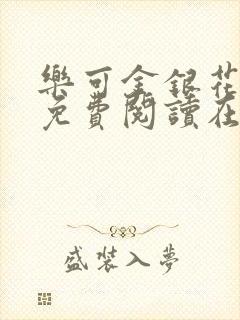 樂可金銀花
免費閱讀在
盛裝入夢